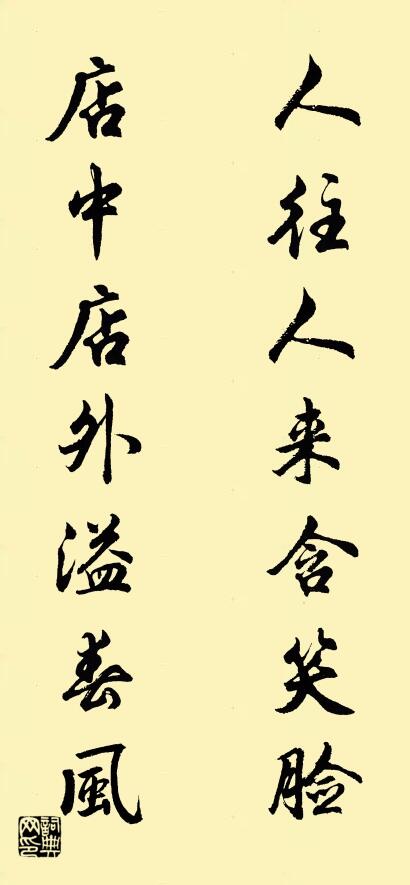 人往人来含笑脸
店中店外溢春風
詞典网印